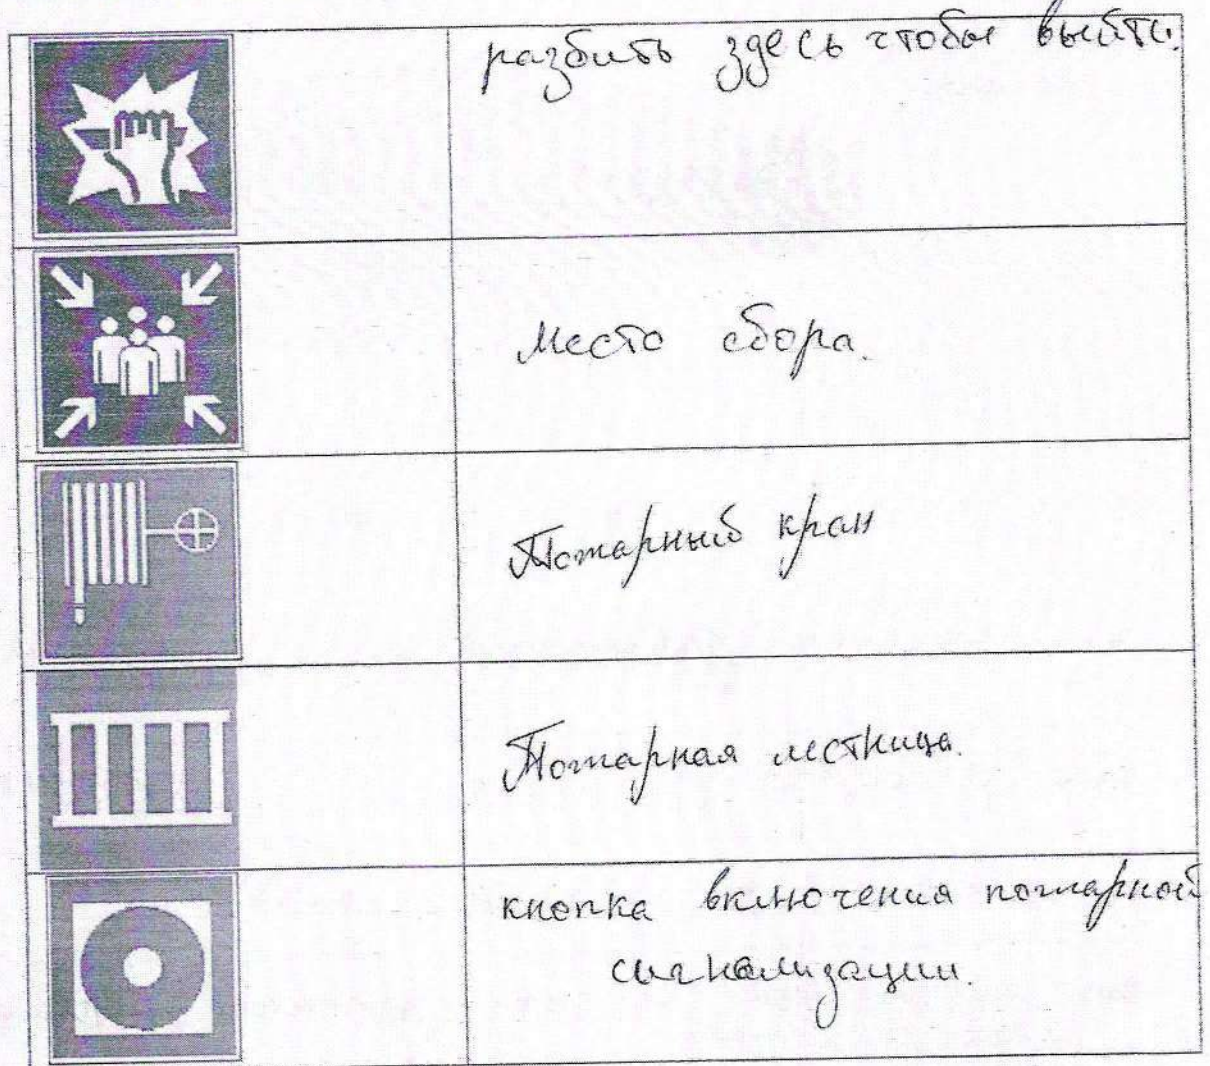 разбить здесь чтобы выйти.
Место сбора.
Пожарный кран
Пожарная лестница.
кнопка включения пожарной
сигнализации.